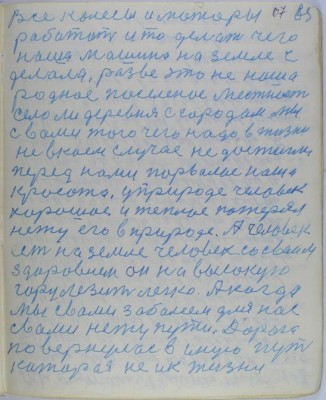 Все колесы и моторы 07 85
работают и то делают чего
наша машина на земле с
делала, разве это не наша
родное поселение местность
село ли деревня с городам мы
с вами того чего надо в жизни
не в коем случае не достигли
перед нами порвалас наша
красота, у природе человек
хорошое и теплое потерял
нету его в природе. А человек
ест на земле человек со своим
здоровием он на высокую
гору лезит легко. А когда
мы с вами заболем для нас
с вами нету пути. Дорога
повернулас в иную пут
каторая не ик жизни